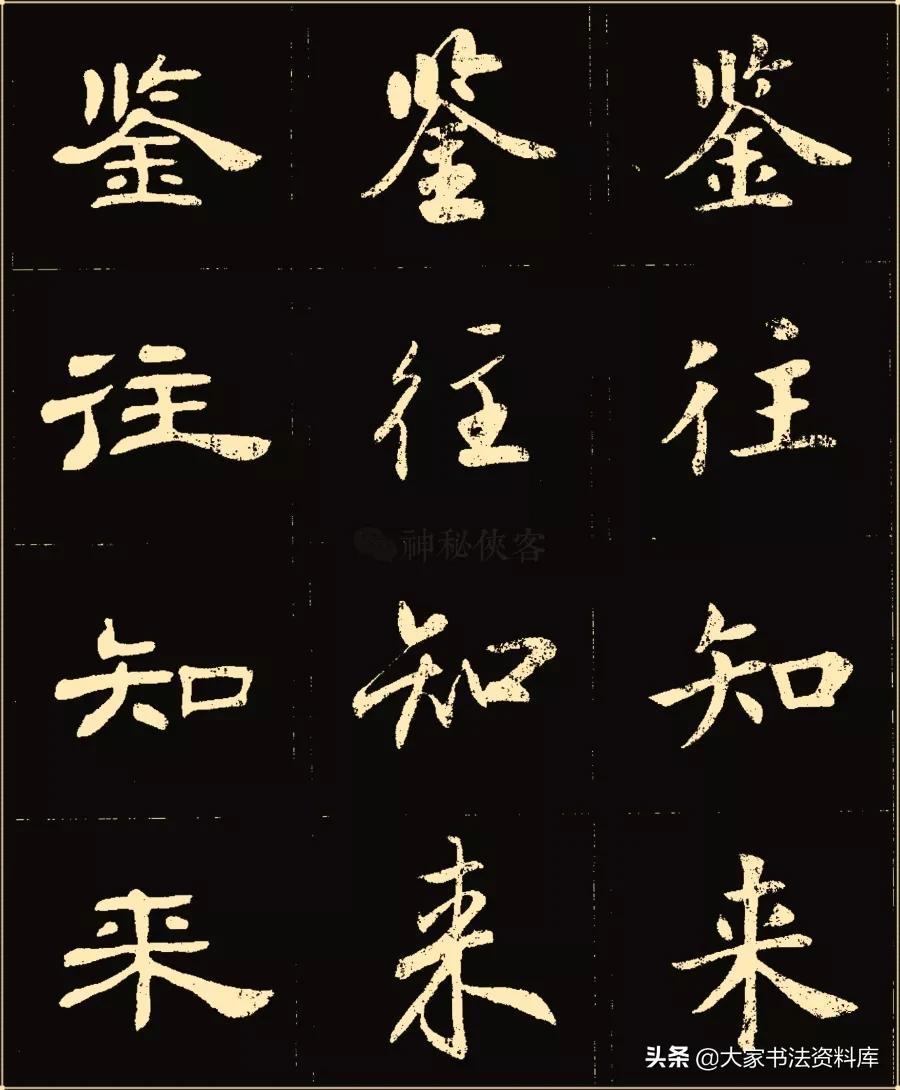 鉴 鉴 鉴
往 往 往
神秘侠客
知 知 知
来 来 来
头条 @大家书法资料库